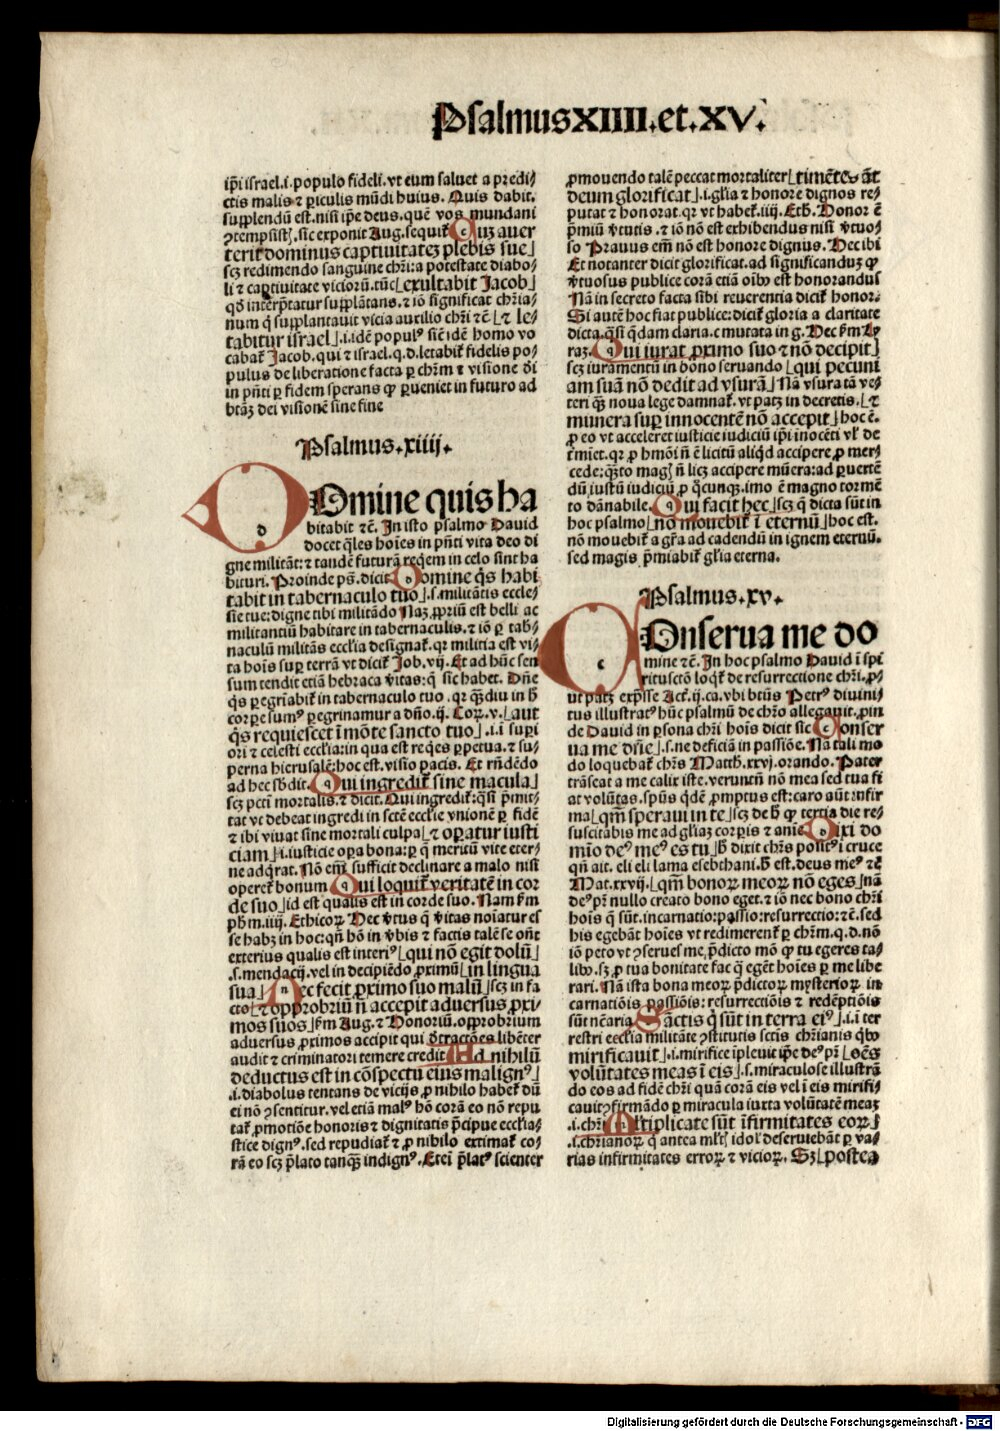 Psalmus XIIII. et. XV.
ip̄i israel .i. populo fideli. vt eum saluet a predi⸗
ctis malis ⁊ ꝑiculis mūdi huius. Quis dabit.
supplendū est. nisi ip̄e deus. quē vos mundani
ꝯtempsistꝭ. sic exponit Aug. sequiť Cuꝫ auer
terit dominus captiuitateꝫ plebis sue⌋
scꝫ redimendo sanguine chr̄i: a potestate diabo⸗
li ⁊ captiuitate vicioꝝ. tūc⌊exultabit Jacob⌋
qđ interp̄tatur supplātans. ⁊ iō significat chr̄ia⸗
num q̇ supplantauit vicia auxilio chr̄i ⁊c̄⌊⁊ le⸗
tabitur israel⌋.i. idē popul⁹ sicē idē homo vo
cabať Jacob. qui ⁊ israel. q.d. letabiť fidelis po⸗
pulus de liberatione facta ꝑ chr̄m ⁊ visione dei
in p̄nti ꝑ fidem sperans ꝙ ꝑueniet in futuro ad
btāꝫ dei visionē sine fine
Psalmus. xiiij.
DOmine quis ha
bitabit ⁊c̄. In isto psalmo Dauid
docet q̄les hoīes in p̄nti vita deo di
gne militāt: ⁊ tandē futurā reqēm in celo sint ha
bituri. Proinde ps̄. dicit Domine q̇s habi
tabit in tabernaculo tuo⌋.s. militātis eccle⸗
sie tue: digne tibi militādo Naꝫ ꝓpriū est belli ac
militantiū habitare in tabernaculis. ⁊ iō ꝑ tab̄⸗
naculū militās eccl̄ia designať. qꝛ militia est vi⸗
ta hoīs suꝑ terrā vt dicit Job. vij. Et ad hūc sen
sum tendit etiā hebraca v̄itas: q̄ sic habet. Dn̄e
q̇s ꝑegrīabiť in tabernaculo tuo. qꝛ q̄diu in h̄
corꝑe sum⁹ ꝑegrinamur a dn̄o. ij. Coꝝ. v.⌊aut
q̇s requiescet ī mōte sancto tuo⌋.i. ī suꝑi
ori ⁊ celesti eccl̄ia: in qua est reqes ꝑpetua. ⁊ su⸗
perna hierusalē: hoc est. visio pacis. Et rn̄dēdo
ad hec sb̄dit. Qui ingrediť sine macula⌋
scꝫ pctī mortalis. ⁊ dicit. Qui ingrediť: q̄si p̄mit⸗
tat vt debeat ingredi in sctē eccl̄ie vnionē ꝑ fidē
⁊ ibi viuat sine mortali culpa⌊⁊ oꝑatur iusti
ciam⌋.i. iusticie oꝑa bona: ꝑ q̄ meritū vite eter⸗
ne adq̇rat. Nō em̄ sufficit declinare a malo nisi
opereť bonum Qui loquiť veritatē in cor
de suo⌋id est qualis est in corde suo. Nam ẜm
ph̄m. iiij. Ethicoꝝ Hec v̄tus q̄ v̄itas noīatur es
se habꝫ in hoc: qn̄ hō in v̄bis ⁊ factis talē se on̄t
exterius qualis est interi⁹⌊qui nō egit dolū⌋
.s. mendacij. vel in decipiēdo ꝓximū⌊in lingua
sua⌋ Nec fecit ꝓximo suo malū⌋scꝫ in fa
cto⌊⁊ opprobriū n̄ accepit aduersus ꝓxi⸗
mos suos⌋ẜm Aug. ⁊ Honoriū. opprobrium
aduersus ꝓximos accipit qui detractōes libēter
audit ⁊ criminatori temere credit Ad nihilū
deductus est in cōspectu eius malign⁹⌋
.i. diabolus tentans de vicijs, ꝓ nihilo habeť dū
ei nō ꝯsentitur. vel etiā mal⁹ hō corā eo nō repu
tať ꝓmotiōe honoris ⁊ dignitatis p̄cipue eccl̄ia⸗
stice dign⁹. sed repudiať ⁊ ꝓ nihilo extimať co⸗
rā eo scꝫ p̄lato tanqꝫ indign⁹. Etei p̄lat⁹ scienter
ꝓmouendo talē peccat mortaliter⌊timētes āt
deum glorificat⌋.i. gl̄ia ⁊ honore dignos re⸗
putat ⁊ honorat. qꝛ vt habeť. iiij. Eth̄. Honor ē
p̄miū v̄tutis. ⁊ iō nō est exhibendus nisi v̄tuo⸗
so Prauus em̄ nō est honore dignus. Hec ibi
Et notanter dicit glorificat. ad significanduꝫ ꝙ
v̄tuosus publice corā etiā oībꝰ est honorandus
Nā in secreto facta sibi reuerentia diciť honor.
Si autē hoc fiat publice: diciť gloria a claritate
dicta. q̄si q̇dam claria. c mutata in g. Hec ẜm Ly
raꝫ. Qui iurat ꝓximo suo ⁊ nō decipit⌋
scꝫ iuramentū in bono seruando⌊qui pecuni
am suā nō dedit ad vsurā⌋Nā vsura tā ve⸗
teri q̄ꝫ noua lege damnať. vt patꝫ in decretis.⌊⁊
munera suꝑ innocentē nō accepit⌋hoc ē.
ꝓ eo vt acceleret iusticie iudiciū ip̄i inocēti vl̄ de
t̄miet. qꝛ ꝓ hmōi n̄ ē licitū aliq̇d accipere, ꝓ mer⸗
cede: q̄ꝫto magꝭ n̄ licꝫ accipere mūera: ad ꝑuertē
dū iustū iudiciū, ꝓ q̇cunqꝫ. imo ē magno tormē
to dānabile. Qui facit hec⌋scꝫ q̄ dicta sūt in
hoc psalmo⌊nō mouebiť ī eternū⌋hoc est.
nō mouebiť a gr̄a ad cadendū in ignem eternū.
sed magis p̄miabiť gl̄ia eterna.
Psalmus. xv.
COnserua me do
mine ⁊c̄. In hoc psalmo Dauid ī spi
ritu sctō loq̇ť de resurrectione chr̄i. ꝓ⸗
ut patꝫ exp̄sse Act. ij. ca. vbi btūs Petr⁹ diuini⸗
tus illustrat⁹ hūc psalmū de chr̄o allegauit. ꝓin
de Dauid in ꝑsona chr̄i hoīs dicit sic Conser
ua me dn̄e⌋.s. ne deficiā in passiōe. Nā tali mo
do loquebať chr̄s Matth̄. xxvj. orando. Pater
trāseat a me calix iste. veruntn̄ nō mea sed tua fi
at volūtas. spūs q̇dē ꝓmptus est: caro aūt infir
ma⌊qm̄ speraui in te⌋scꝫ de h̄ ꝙ tertia die re⸗
suscitabis me ad gl̄iaꝫ corꝑis ⁊ anīe Dixi do
mīo de⁹ me⁹ es tu⌋h̄ dixit chr̄s posit⁹ ī cruce
qn̄ ait. eli eli lama asebthani. h̄ est. deus me⁹ ⁊c̄
Mat. xxvij.⌊qm̄ bonoꝝ meoꝝ nō eges⌋nā
de⁹ pr̄ nullo creato bono eget. ⁊ iō nec bono chr̄i
hoīs q̄ sūt. incarnatio: passio: resurrectio: ⁊c̄. sed
his egebāt hoīes vt redimerenť ꝑ chr̄m. q.d. nō
iō peto vt ꝯserues me, p̄dicto mō ꝙ tu egeres ta⸗
libꝰ. sꝫ ꝓ tua bonitate fac q̄ egēt hoīes ꝑ me libe
rari. Nā ista bona meoꝝ p̄dictoꝝ mysterioꝝ in
carnatiōis passiōis: resurrectiōis ⁊ redēptiōis
sūt nc̄aria Sāctis q̇ sūt in terra ei⁹⌋.i. ī ter
restri eccl̄ia militāte ꝯstitutis sctis chr̄ianis q̇bꝰ
mirificauit⌋.i. mirifice īpleuit ip̄e de⁹ pr̄⌊oēs
volūtates meas ī eis⌋.s. miraculose illustrā
do eos ad fidē chr̄i quā corā eis vel ī eis mirifi⸗
cauit ꝯfirmādo ꝑ miracula iuxta volūtatē meaꝫ
.i. chr̄i Mltiplicate sūt īfirmitates eoꝝ⌋
.i. chr̄ianoꝝ q̇ antea mltꝭ idol̄ deseruiebāt ꝑ va⸗
rias infirmitates erroꝝ ⁊ vicioꝝ. Sꝫ⌊postea
Digitalisierung gefördert durch die Deutsche Forschungsgemeinschaft - DFG